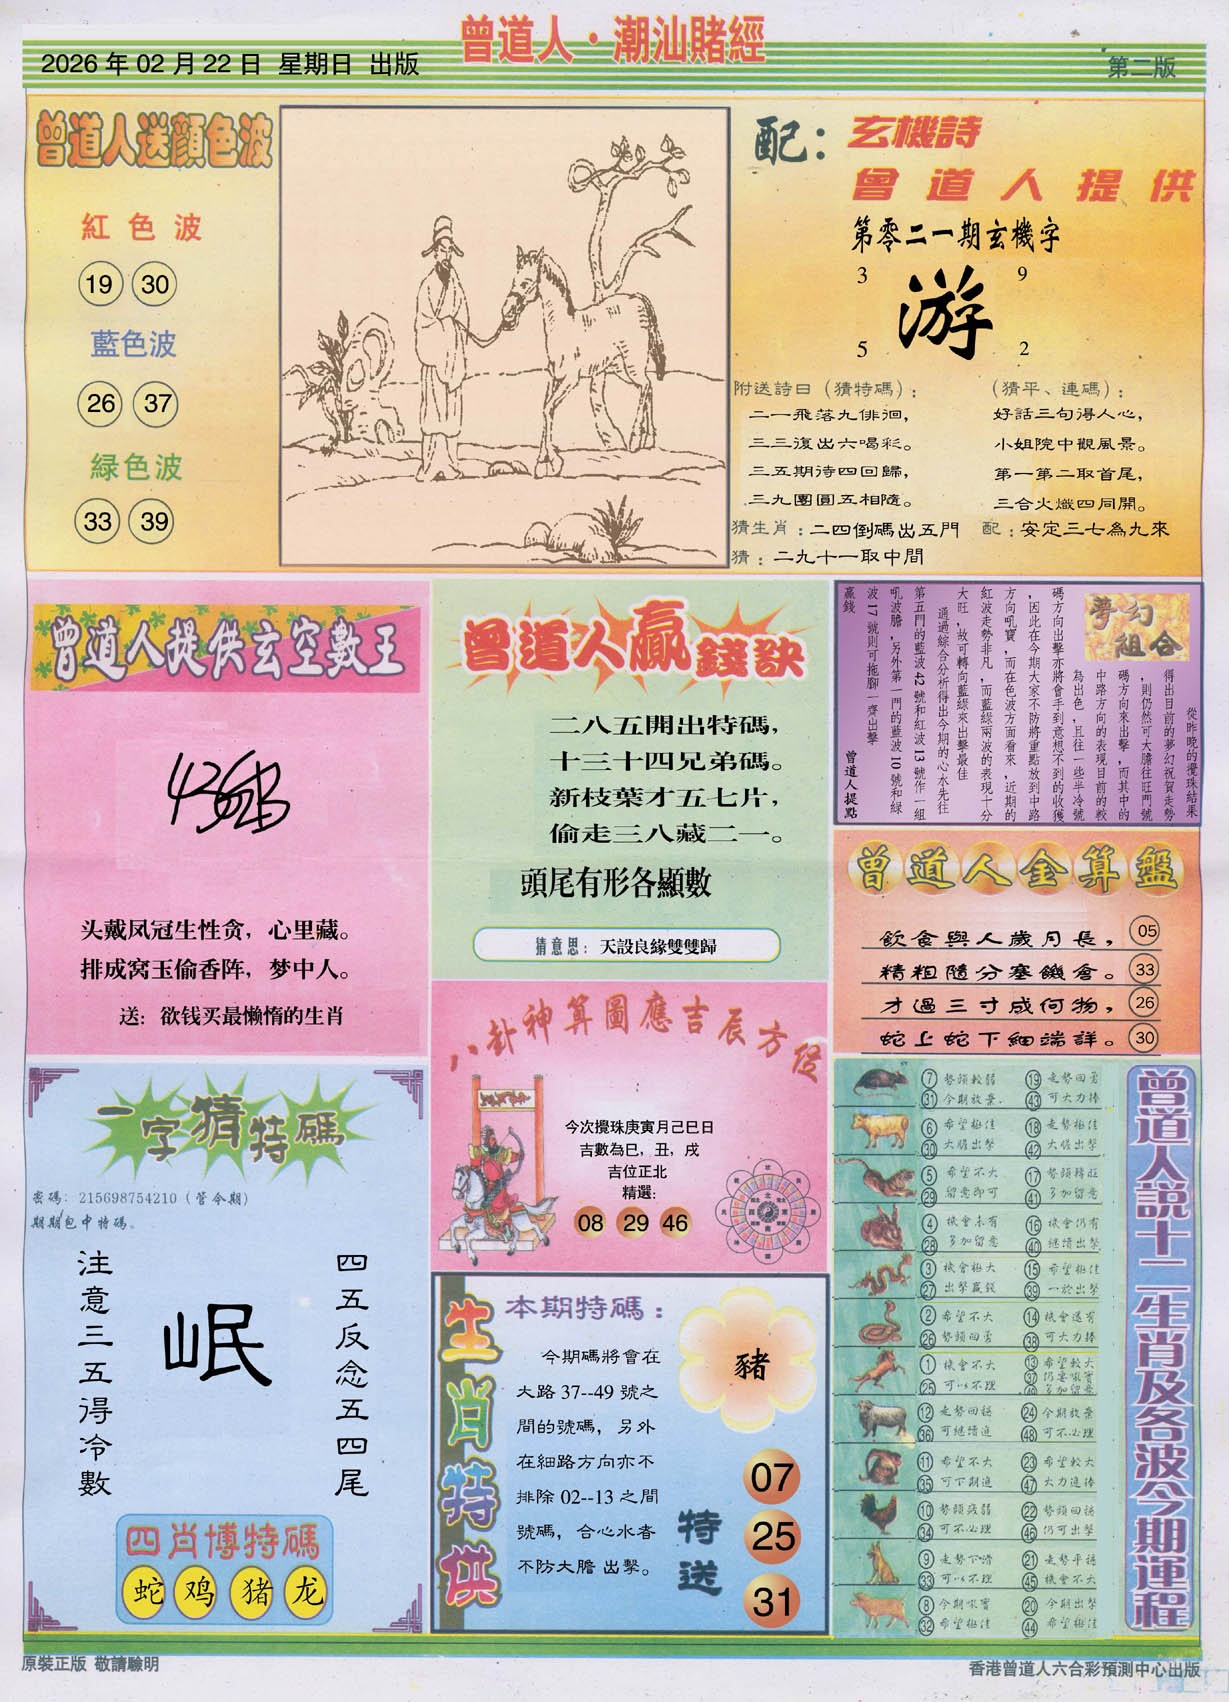 曾道人·潮汕賭經
2026 年 02 月 22 日 星期日 出版
第二版
曾道人送顏色波
紅色波
19 30
藍色波
26 37
緑色波
33 39
配：
玄機詩
曾道人提供
第零二一期玄機字
3 9
游
5 2
附送詩曰（猜特碼）：
二一飛落九俳徊，
三三復出六喝彩。
三五期待四回歸，
三九團圓五相隨。
（猜平、連碼）：
好話三句得人心，
小姐院中觀風景。
第一第二取首尾，
三合火熾四同開。
猜生肖：二四倒碼出五門
配：安定三七為九來
猜：二九十一取中間
曾道人提供玄空數王
头戴凤冠生性贪，心里藏。
排成窝玉偷香阵，梦中人。
送：欲钱买最懒惰的生肖
曾道人贏錢訣
二八五開出特碼，
十三十四兄弟碼。
新枝葉才五七片，
偷走三八藏二一。
頭尾有形各顯數
猜意思：天設良緣雙雙歸
夢幻
組合
從昨晚的攪珠結果
得出目前的夢幻祝賀走勢
，則仍然可大膽往旺門號
碼方向來出擊，而其中的
中路方向的表現目前的較
為出色，且往一些半冷號
碼方向出擊亦將會手到意想不到的收獲
，因此在今期大家不防將重點放到中路
方向吼寶，而在色波方面看來，近期的
紅波走勢非凡，而藍綠兩波的表現十分
大旺，故可轉向藍綠來出擊最佳
通過綜合分析得出今期的心水先往
第五門的藍波 42 號和紅波 13 號作一組
吼波膽，另外第一門的藍波 10 號和綠
波 17 號則可拖腳一齊出擊
贏錢
曾道人提點
曾道人金算盤
飲食與人歲月長， 05
精粗隨分塞饑倉。 33
才過三寸成何物， 26
蛇上蛇下細端詳。 30
八卦神算圖應吉辰方位
今次攪珠庚寅月己巳日
吉數為巳，丑，戌
吉位正北
精選：
08 29 46
一字猜特碼
密碼：215698754210（管今期）
期期包中特碼。
注意三五得冷數
岷
四五反念五四尾
四肖博特碼
蛇 鸡 猪 龙
生肖特供
本期特碼：
今期碼將會在
大路 37--49 號之
間的號碼，另外
在細路方向亦不
排除 02--13 之間
號碼，合心水者
不防大膽 出擊。
豬
特送
07
25
31
曾道人說十二生肖及各波今期運程
7 勢頭較弱 19 走勢回勇
31 今期放棄 43 可大力捧
6 希望極佳 18 走勢極佳
30 大膽出擊 42 大膽出擊
5 希望不大 17 勢頭轉旺
29 留意即可 41 多加留意
4 機會未有 16 機會仍有
28 多加留意 40 繼續出擊
3 機會極大 15 希望極佳
27 出擊贏錢 39 一於出擊
2 希望不大 14 機會還有
26 勢頭回勇 38 可大力捧
1 機會不大 13 希望較大
25 可以不理 37 仍要吼實
49 多加留意
12 走勢回穩 24 今期放棄
36 可繼續追 48 可不必理
11 希望不大 23 希望較大
35 可下期追 47 大力追捧
10 勢頭疲弱 22 勢頭回穩
34 可不必理 46 仍可出擊
9 走勢下滑 21 走勢平穩
33 可以不理 45 機會不大
8 今期吼實 20 今期出擊
32 希望極佳 44 希望極佳
原裝正版 敬請驗明
香港曾道人六合彩預測中心出版